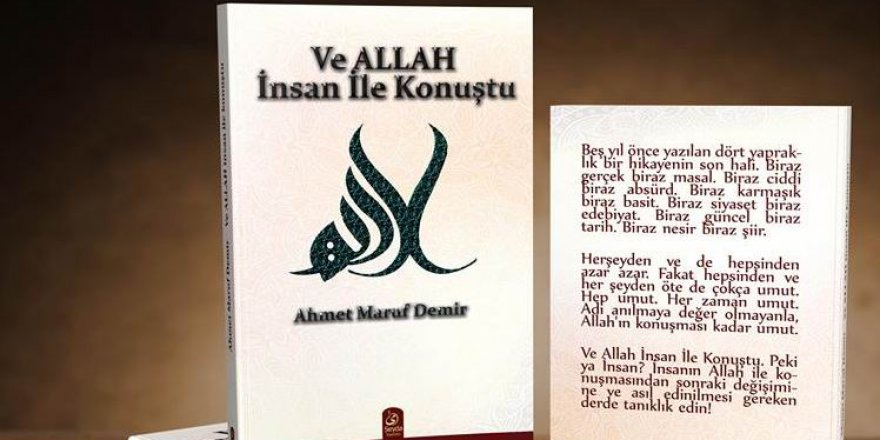 Ve ALLAH
İnsan İle Konuştu
Ahmet Maruf Demir
Seyda
Ahmet Maruf Demir Ve ALLAH İnsan ile konuştu
Beş yıl önce yazılan dört yaprak-
lık bir hikayenin son hali. Biraz
gerçek biraz masal. Biraz ciddi
biraz absürd. Biraz karmaşık
biraz basit. Biraz siyaset biraz
edebiyat. Biraz güncel biraz
tarih. Biraz nesir biraz şiir.
Herşeyden ve de hepsinden
azar azar. Fakat hepsinden ve
her şeyden öte de çokça umut.
Hep umut. Her zaman umut.
Adı anılmaya değer olmayanla,
Allah'ın konuşması kadar umut.
Ve Allah İnsan İle Konuştu. Peki
ya İnsan? İnsanın Allah ile ko-
nuşmasından sonraki değişimi-
ne ve asıl edinilmesi gereken
derde tanıklık edin!